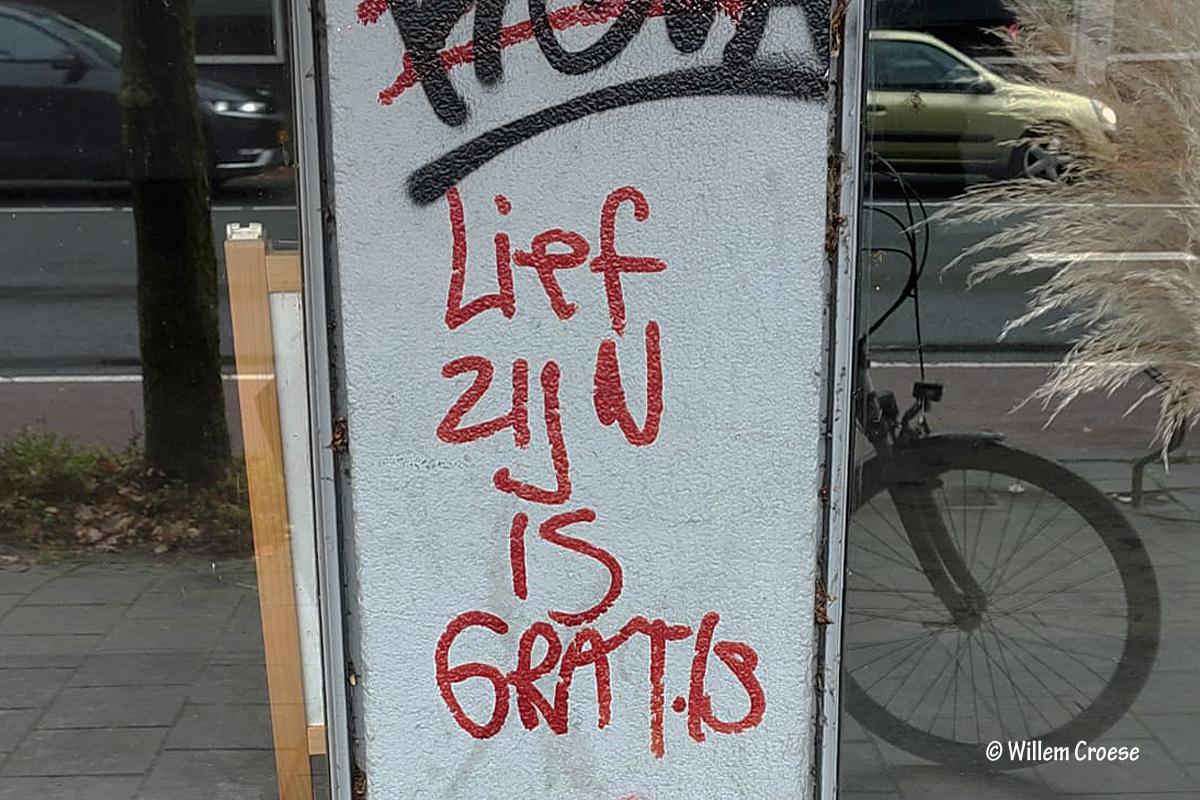 Lief
zijN
is
GRATis
© Willem Croese